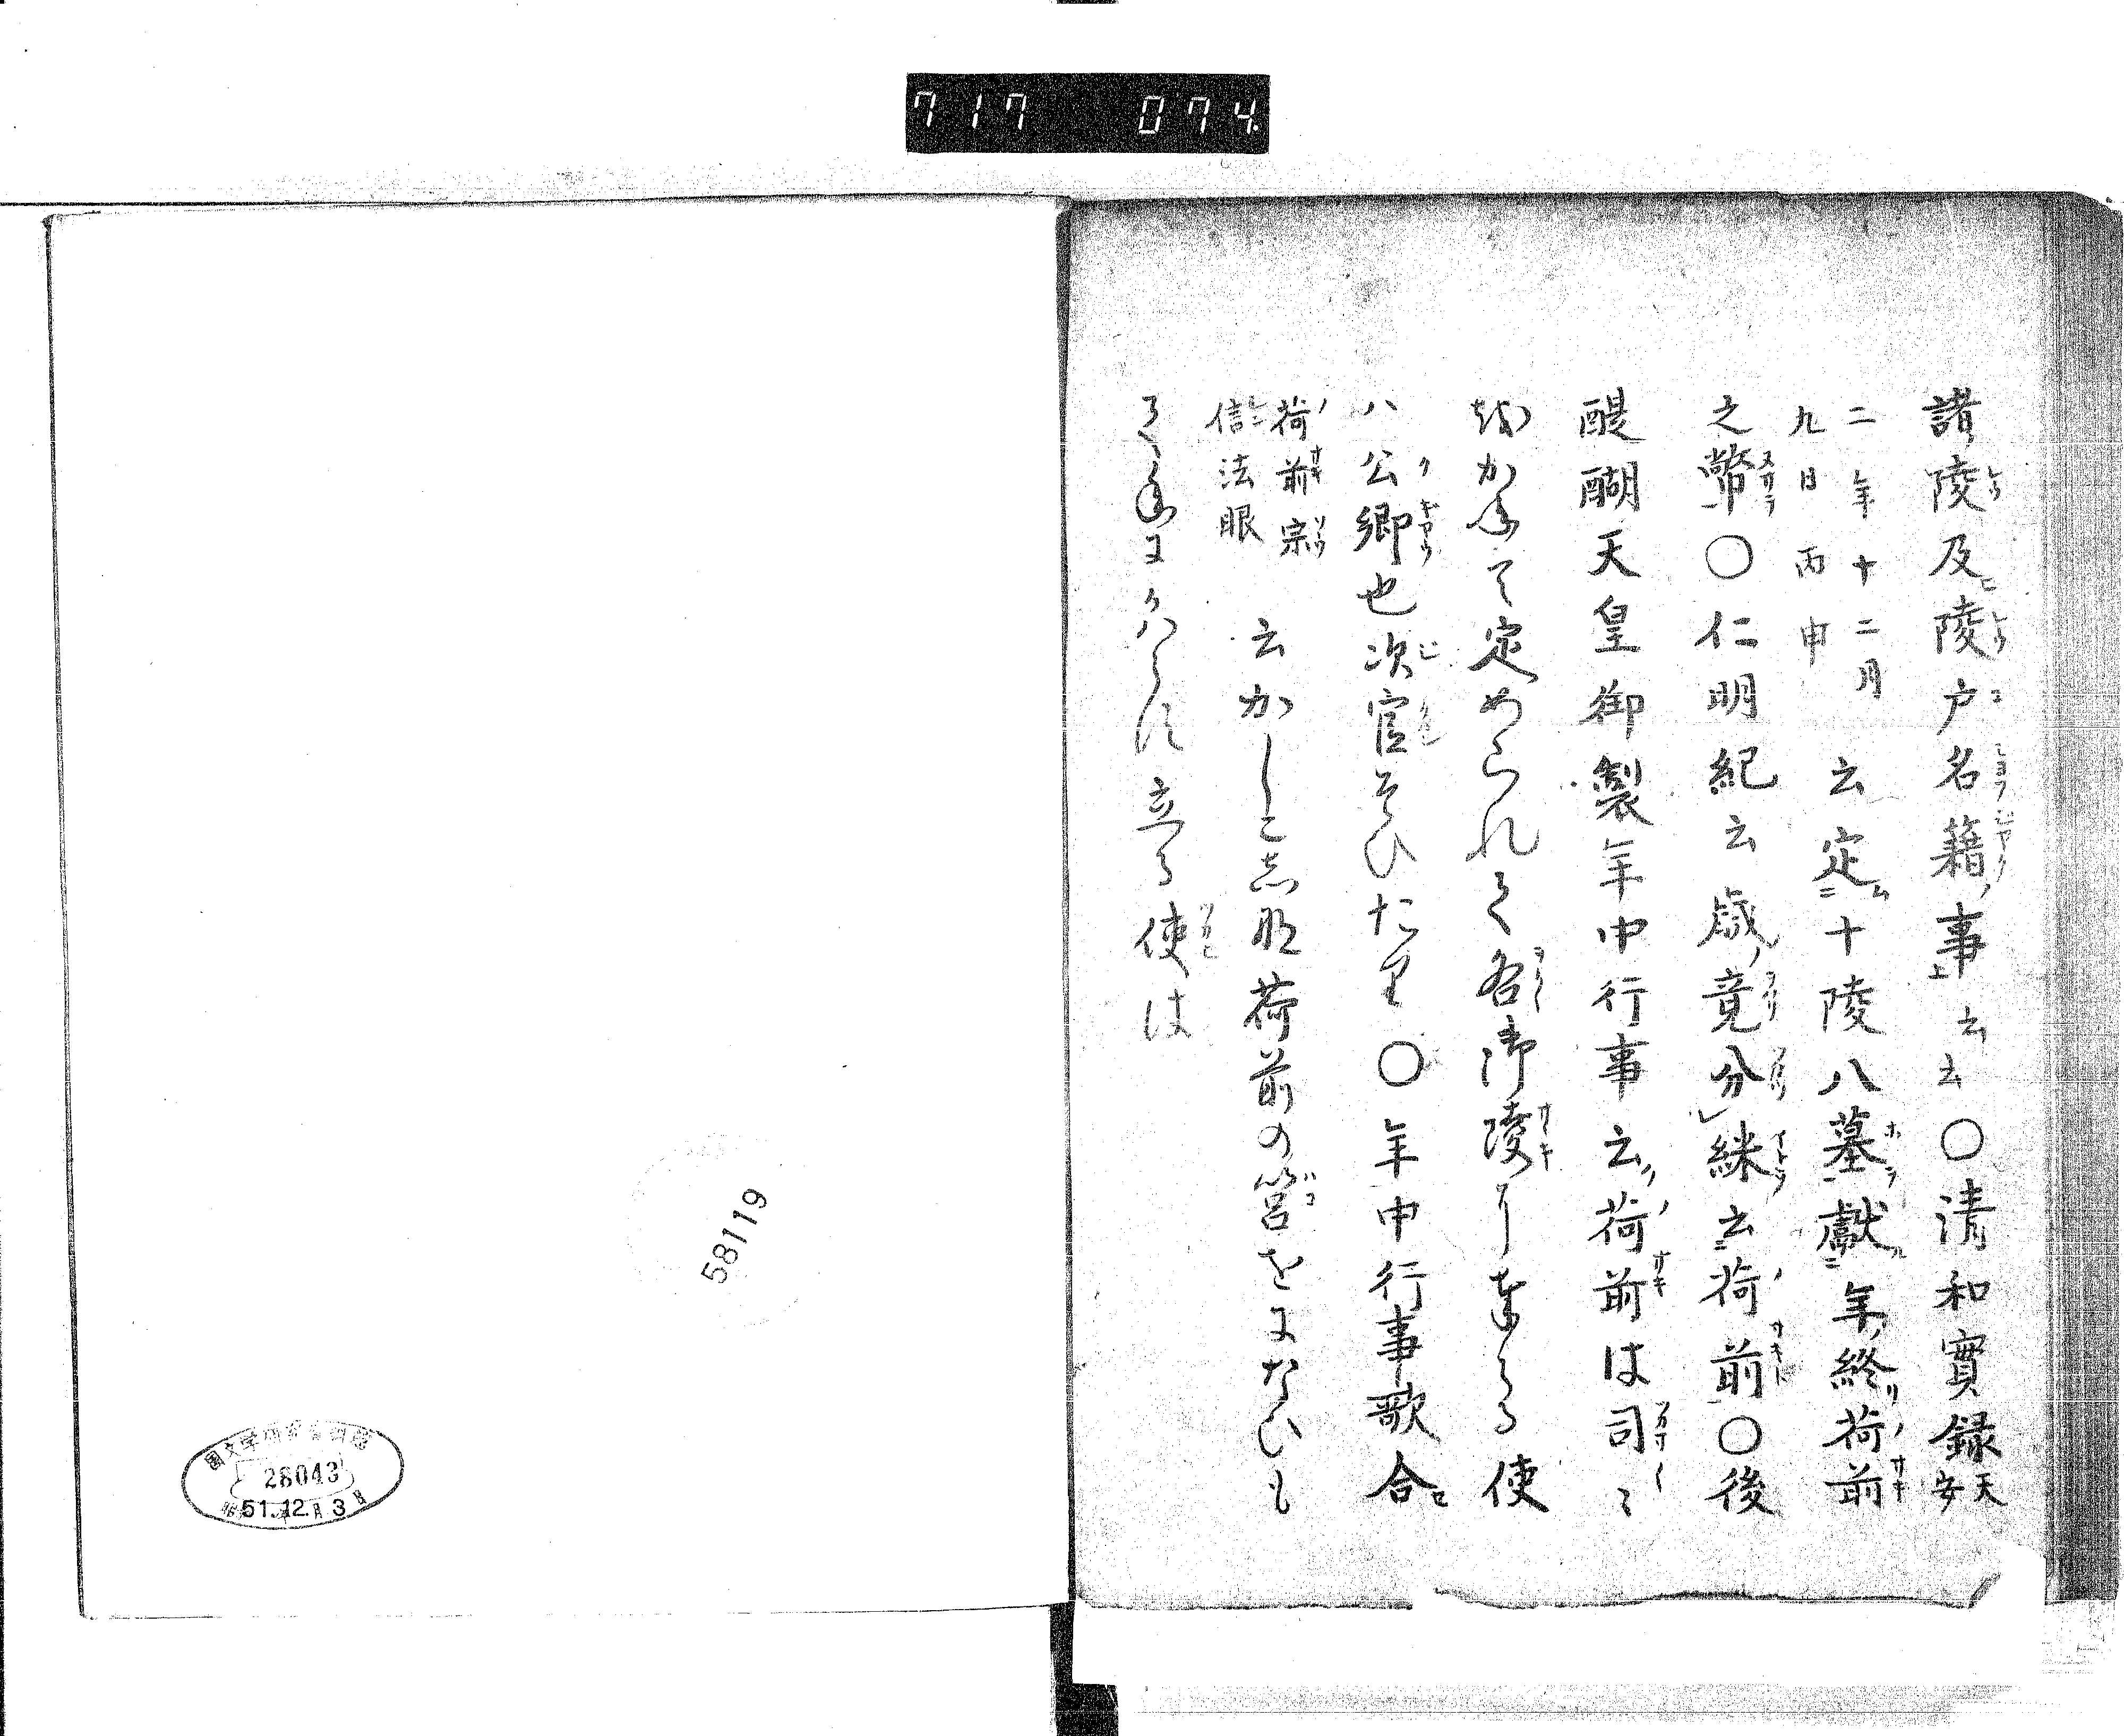 717 074
諸陵及陵戸名籍事云云〇清和實録天安
二年十二月九日丙申云定十陵八墓獻年終荷前
之幣〇仁明紀云歳竟分綵云荷前〇後
醍醐天皇御製年中行事云荷前は司〻
かねて定められて各御陵に奉る使
ハ公卿也次官そひたり〇年中行事歌合
荷前宗信法眼云かしこき名荷前の筥をになひも
て年にかはらす立る使は
58119
28043
51.12.3